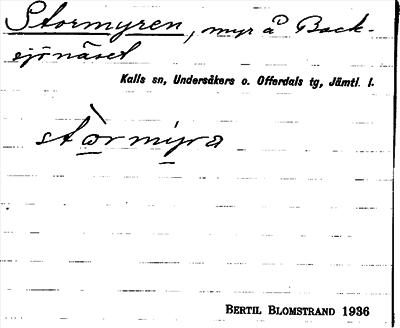 Stormyren, myr å Back-
sjönäset
Kalls sn, Undersåkers o. Offerdals tg, Jämtl. l.
stòrmyra
BERTIL BLOMSTRAND 1936